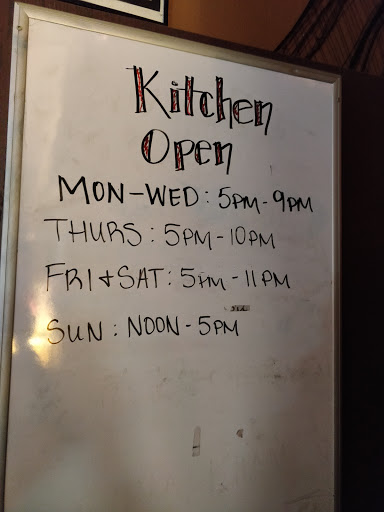 Kitchen
Open
MON-WED: 5PM-9PM
THURS: 5PM-10PM
FRI+SAT: 5PM-11PM
SUN: NOON-5PM